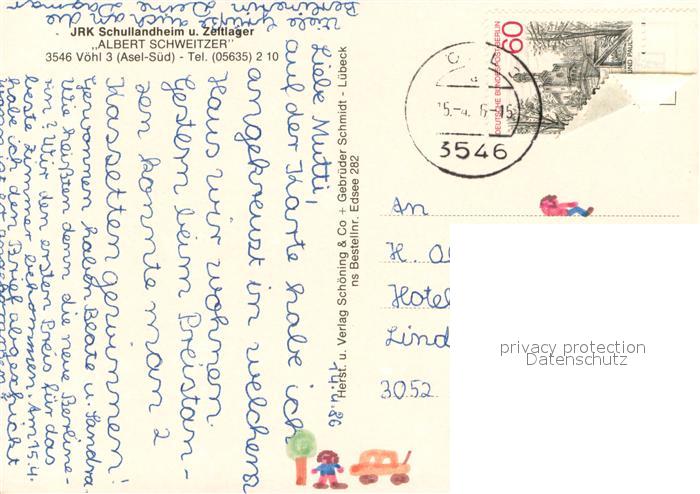 JRK Schullandheim u. Zeltlager
"ALBERT SCHWEITZER"
3546 Vöhl 3 (Asel-Süd) - Tel. (05635) 2 10
14.4.86
Liebe Mutti,
auf der Karte habe ich
angekreuzt in welchem
Haus wir wohnen.
Gestern beim Preistan-
zen konnte man 2
Kassetten gewinnen!
Gewonnen haben Beate u. Sandra
Wie heißten denn die neue Berline-
rin? Wir den ersten Preis für das
beste Zimmer bekommen. Am 15.4.
habe ich den Brief abgeschickt
Viele Grüße auch an die
Berlinerin Deine Dagmar
Herst. u. Verlag Schöning & Co + Gebrüder Schmidt - Lübeck
ns Bestellnr. Edsee 282
60
DEUTSCHE BUNDESPOST BERLIN
3546
An
H.
Hotel
Lind
3052
privacy protection
Bartko-Reher-OHG